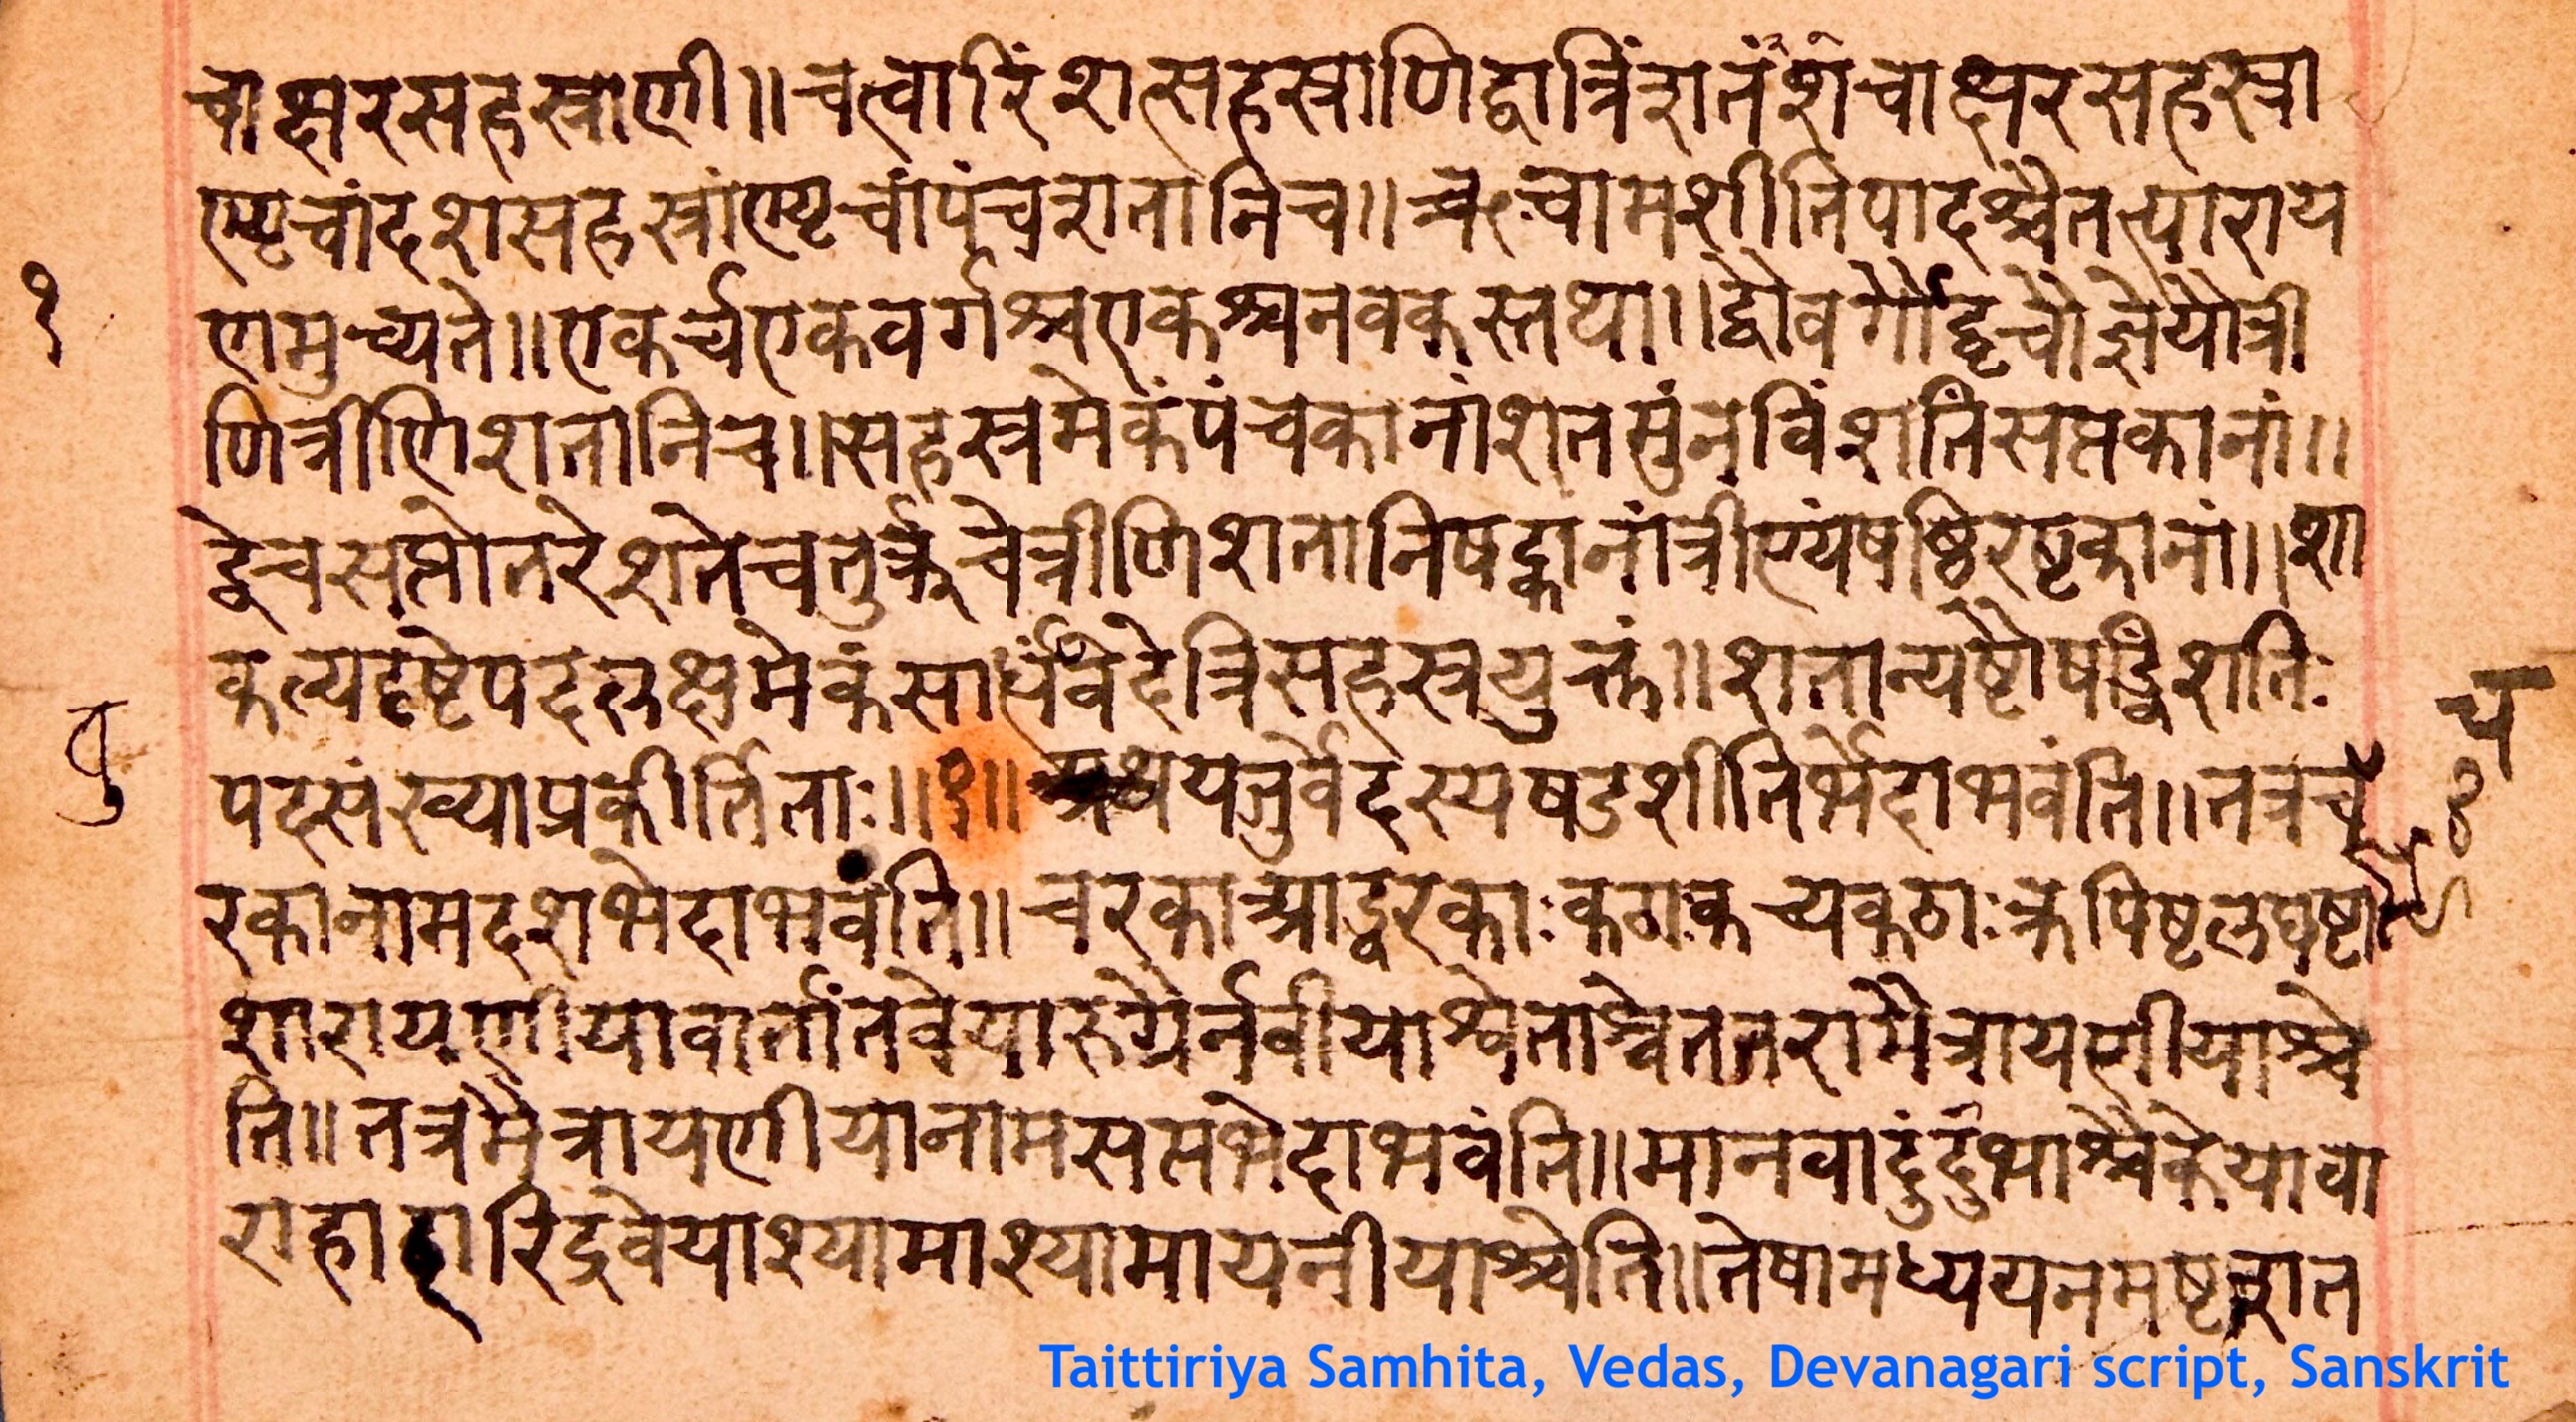 चाक्षरसहस्राणी॥चत्वारिंशत्सहस्राणिद्वात्रिंशतंशंचाक्षरसहस्रा
ण्यृचांदशसहस्रांण्यृचांपंचशतानिच॥ऋचामशीतिपादश्चैतत्पाराय
१
णमुच्यते॥एकर्चएकवर्गश्चएकश्चनवकस्तथा॥द्वौवर्गौद्वृचौज्ञेयौत्री
णित्रीणिशतानिच॥सहस्रमेकंपंचकानांशतमुंनविंशतिंसप्तकानां॥
द्वेचसप्तोतरेशतेचतुर्ऋचेत्रीणिशतानिषट्कानांत्रीण्यंषष्ठिरष्टकानां॥शा
कल्यदृष्टेपदलक्षमेकंसार्धंवेदेत्रिसहस्रयुक्तं॥शतान्यष्टौषड्विंशतिः
च
पदसंख्याप्रकीर्तिताः॥१॥अथयजुर्वेदस्यषडशीतिर्भेदाभवंति॥तत्रच
रकानामदशभेदाभवंति॥चरकाआद्वरकाःकठाकच्यकठाःकपिष्टलघष्टा
शारायणीयावार्तांतवेयारुग्रैर्नवीयाश्वेताश्वेततरामैत्रायणीयाश्चे
ति॥तत्रमैत्रायणीयानामसप्तभेदाभवंति॥मानवादुंदुभाश्चैकेयावा
राहाहारिद्रवेयाश्यामाश्यामायनीयाश्चेति॥तेषामध्ययनमष्टशत
Taittiriya Samhita, Vedas, Devanagari script, Sanskrit